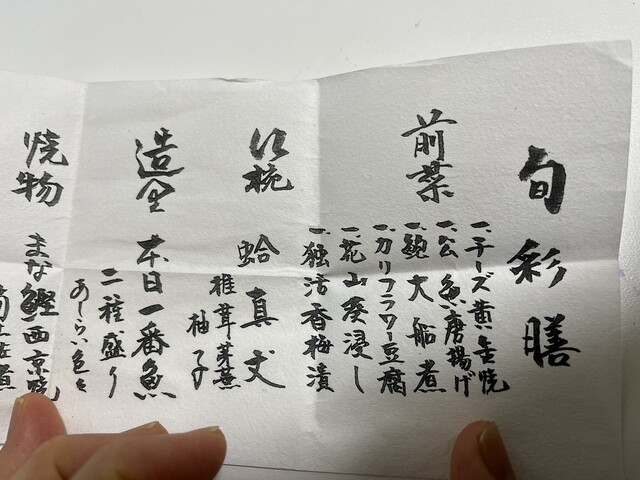 旬彩膳
前菜
一、チーズ黄金焼
一、公魚唐揚げ
一、鮑大船煮
一、カリフラワー豆腐
一、花山葵浸し
一、独活香梅漬
椀
蛤真丈
椎茸 芽蕪
柚子
造里
本日一番魚
二種盛り
あしらい色々
焼物
まな鰹西京焼